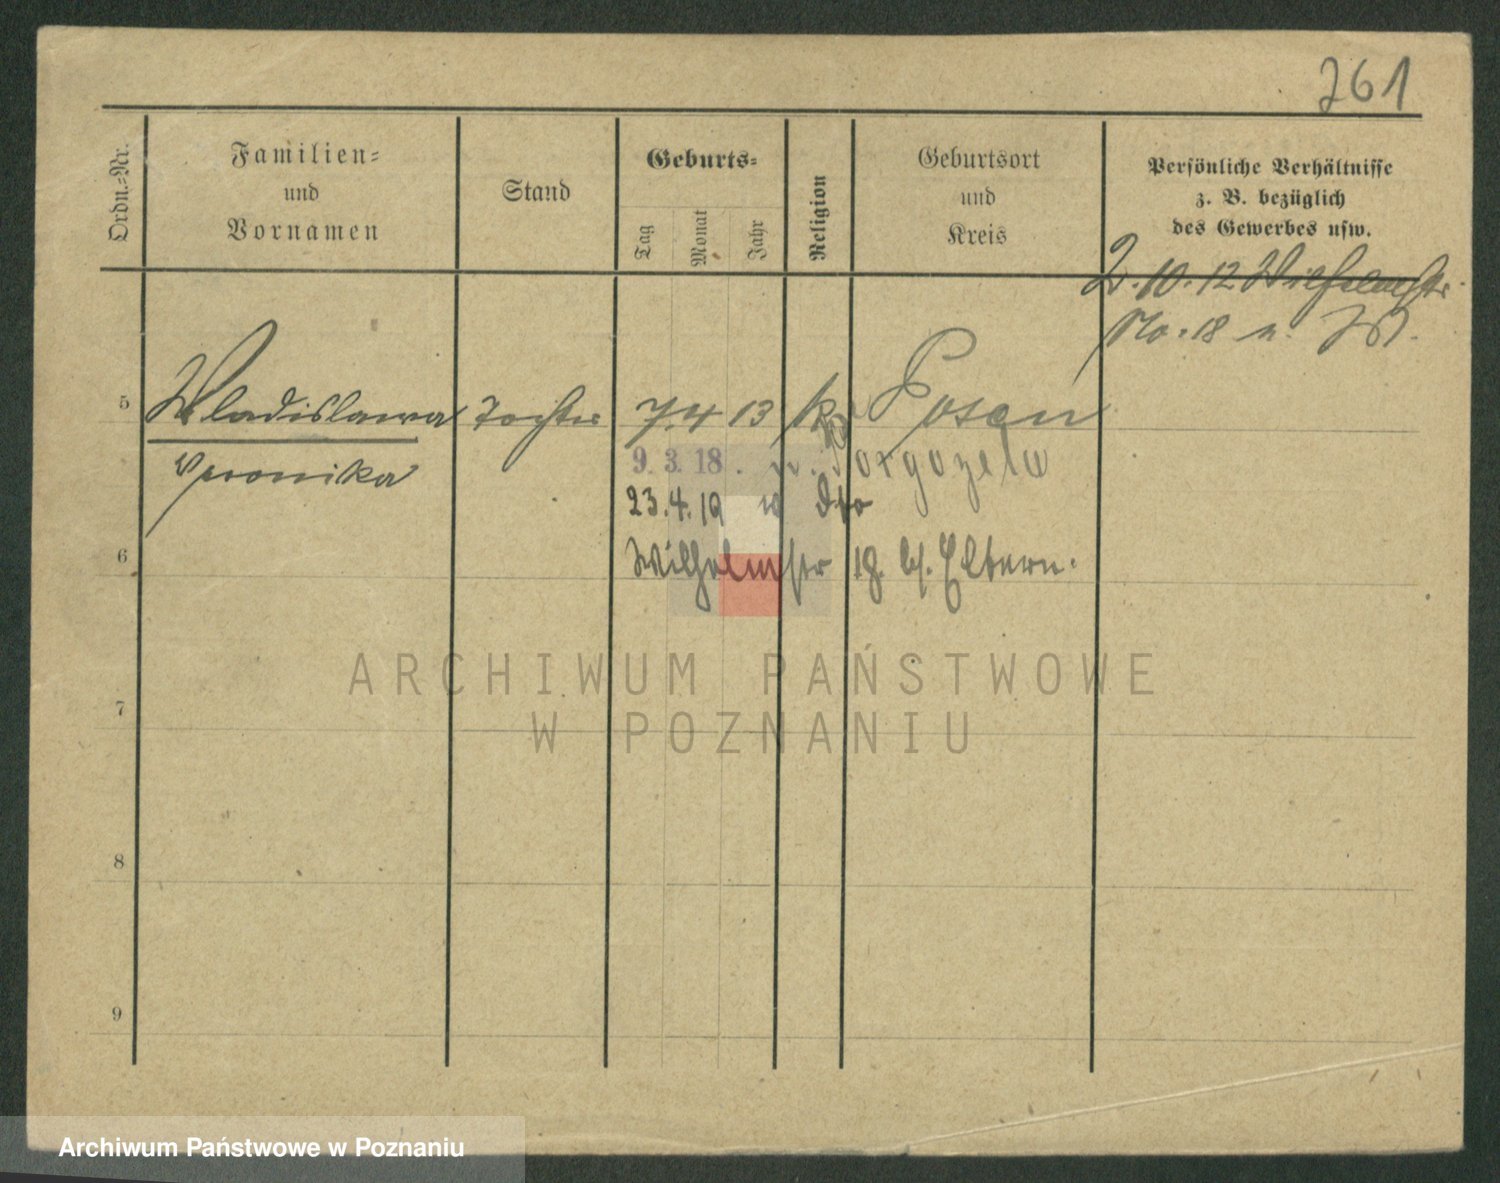 261
Ordn.-Nr.
Familien-
und
Vornamen
Stand
Geburts-
Tag
Monat
Jahr
Religion
Geburtsort
und
Kreis
Persönliche Verhältnisse
z. B. bezüglich
des Gewerbes usw.
2.10.12 Wilhelmstr.
No. 18 n. W.
5 Wladislawa Tochter 7. 4 13 k. Posen
Veronika
9. 3. 18. n.
23.4.19 dto
6
Wilhelmstr 18. b/. Eltern.
7
8
9
ARCHIWUM PAŃSTWOWE
W POZNANIU
Archiwum Państwowe w Poznaniu